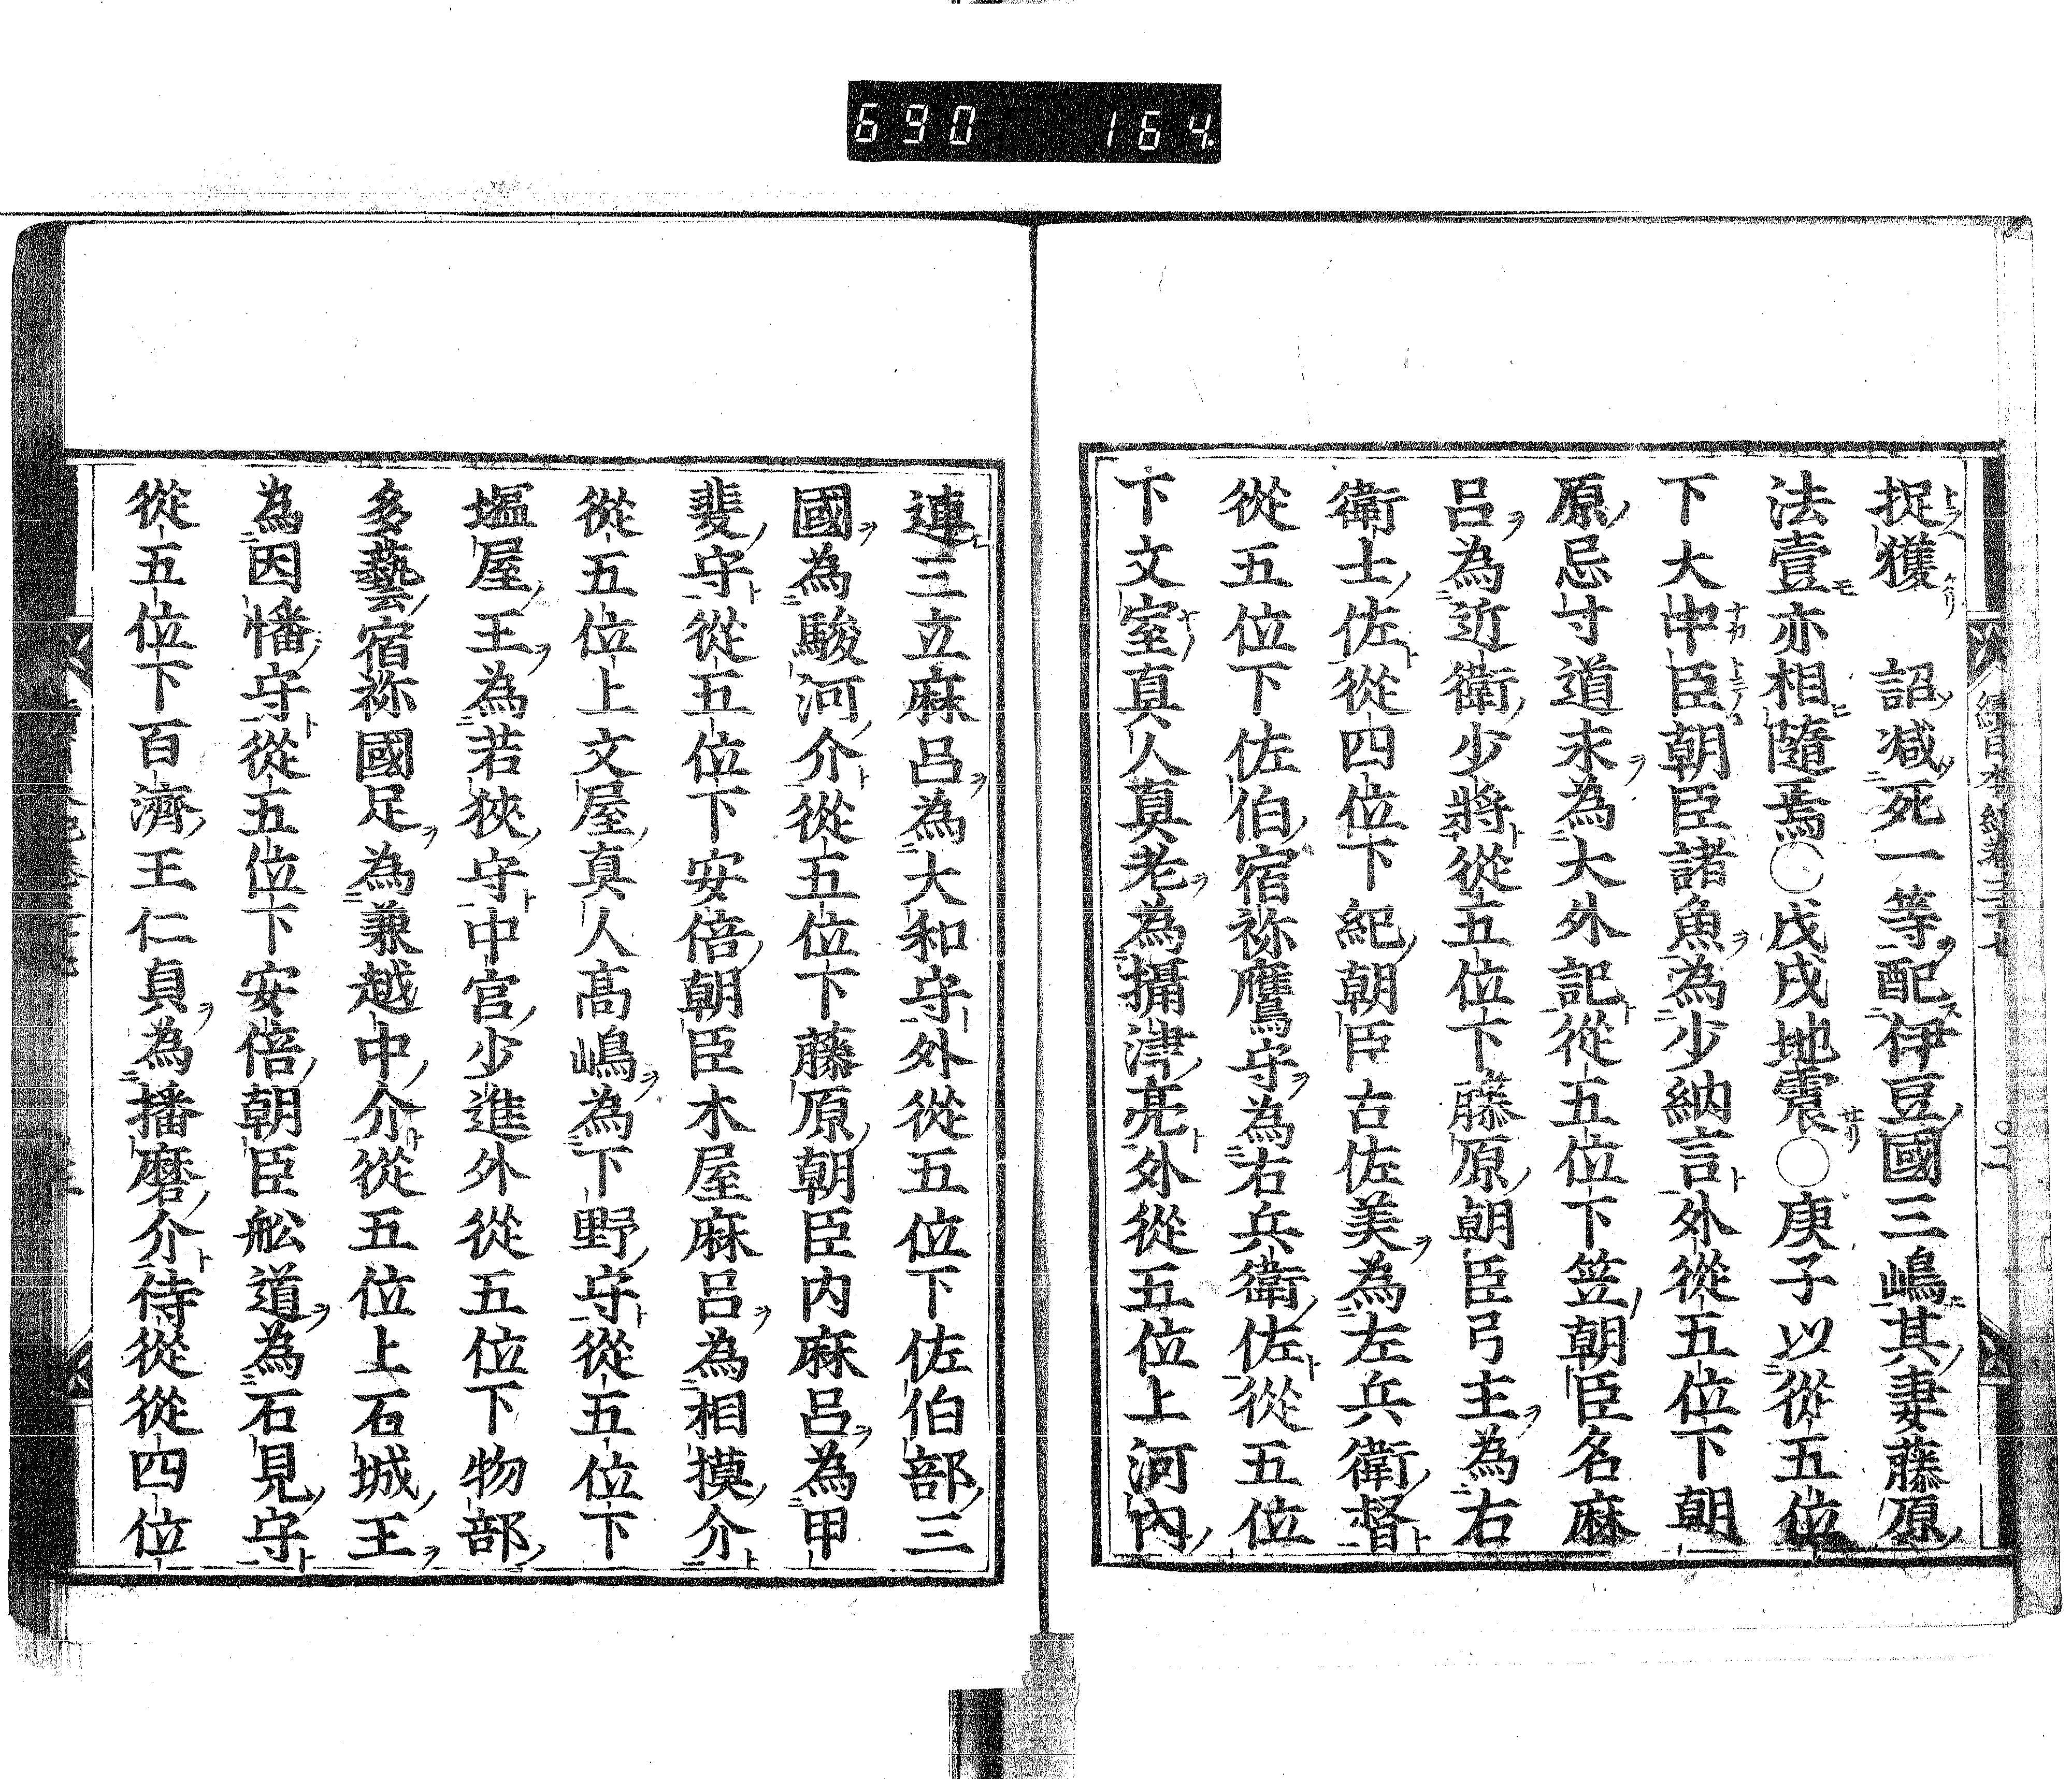 690 164.
續日本紀卷三十七
捉獲 詔減死一等配伊豆國三嶋其妻藤原
法壹亦相隨焉○戊戌地震○庚子以從五位
下大中臣朝臣諸魚為少納言外從五位下朝
原忌寸道永為大外記從五位下笠朝臣名麻
呂為近衛少將從五位下藤原朝臣弓主為右
衛士佐從四位下紀朝臣古佐美為左兵衛督
從五位下佐伯宿祢鷹守為右兵衛佐從五位
下文室真人真老為攝津亮外從五位上河內
連三立麻呂為大和守外從五位下佐伯部三
國為駿河介從五位下藤原朝臣内麻呂為甲
斐守從五位下安倍朝臣木屋麻呂為相摸介
從五位上文屋真人高嶋為下野守從五位下
塩屋王為若狹守中官少進外從五位下物部
多藝宿祢國足為兼越中介從五位上石城王
為因幡守從五位下安倍朝臣舩道為石見守
從五位下百濟王仁貞為播磨介侍從從四位